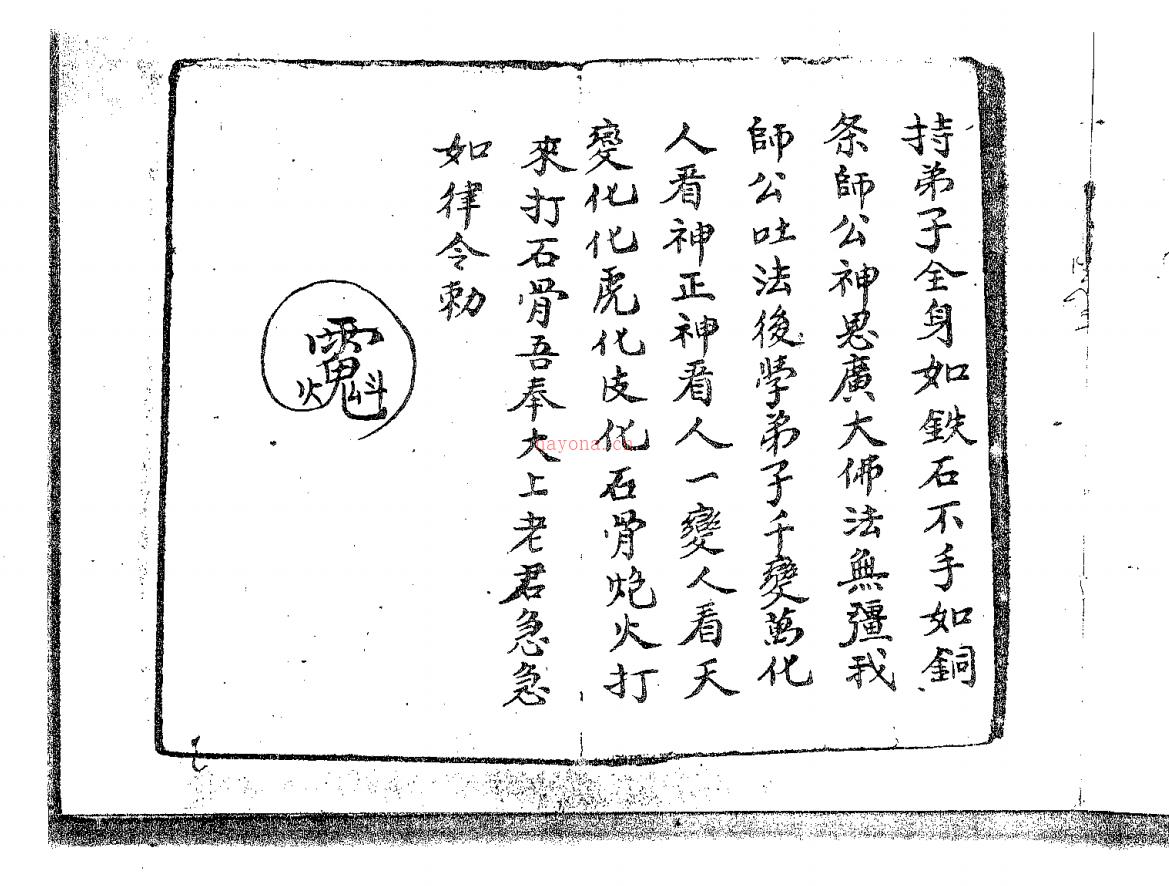 持弟子全身如鉄石不手如銅
条師公神恩廣大佛法無彊我
師公吐法後學弟子千變萬化
人看神正神看人一變人看天
變化化虎化皮化石骨炮火打
來打石骨吾奉大上老君急急
如律令勅
qayona.cn